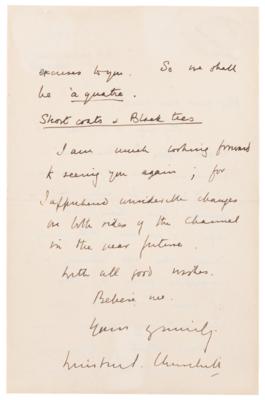 excuses to you. So we shall
be 'à quatre.
Short coats & Black ties
I am much looking forward
to seeing you again; for
I apprehend considerable changes
on both sides of the Channel
in the near future.
With all good wishes.
Believe me.
Yours
Winston S. Churchill